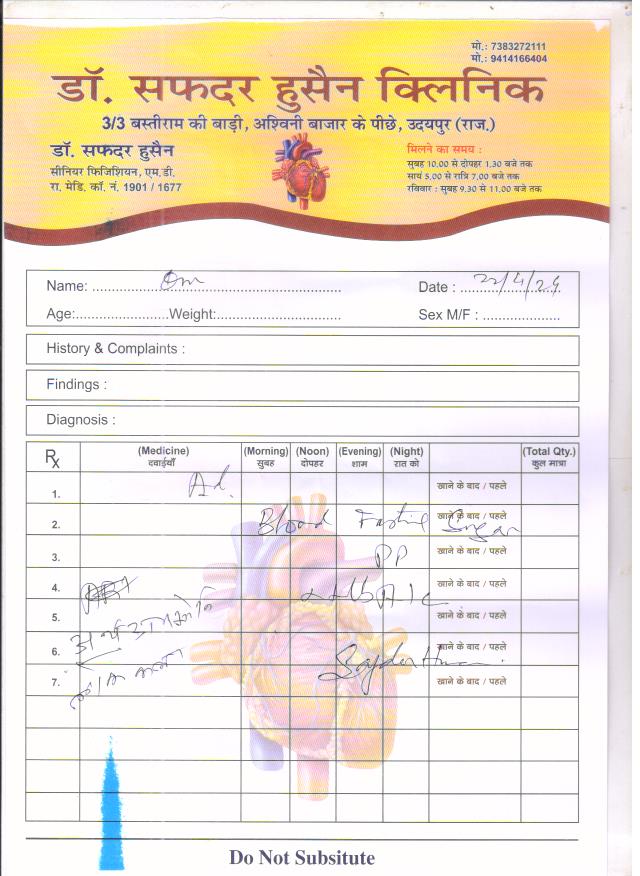 मो.: 7383272111
मो.: 9414166404
डॉ. सफदर हुसैन क्लिनिक
3/3 बस्तीराम की बाड़ी, अश्विनी बाजार के पीछे, उदयपुर (राज.)
डॉ. सफदर हुसैन
सीनियर फिजिशियन, एम.डी.
रा. मेडि. कॉ. नं. 1901 / 1677
मिलने का समय :
सुबह 10.00 से दोपहर 1.30 बजे तक
सायं 5.00 से रात्रि 7.00 बजे तक
रविवार : सुबह 9.30 से 11.00 बजे तक
Name: Om Date : 22/4/24
Age: Weight: Sex M/F :
History & Complaints :
Findings :
Diagnosis :
Rx (Medicine) (Morning) (Noon) (Evening) (Night) (Total Qty.)
दवाईयाँ सुबह दोपहर शाम रात को कुल मात्रा
1. Ad. खाने के बाद / पहले
2. Blood Fasting Sugar खाने के बाद / पहले
3. PP खाने के बाद / पहले
4. HbA1c खाने के बाद / पहले
5. खाने के बाद / पहले
6. खाने के बाद / पहले
7. खाने के बाद / पहले
Do Not Subsitute